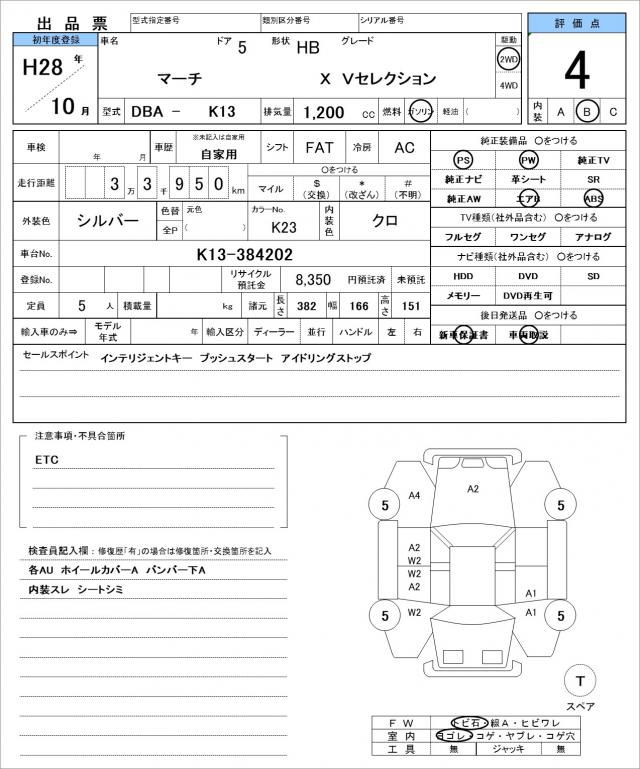 出品票 型式指定番号 類別区分番号 シリアル番号 評価点
初年度登録 車名 ドア 5 形状 HB グレード 駆動 4
H28 年 マーチ X Vセレクション 2WD
4WD
10 月 型式 DBA － K13 排気量 1,200 cc 燃料 ガソリン 軽油 ( ) 内装 A B C
車検 年 月 車歴 ※未記入は自家用 自家用 シフト FAT 冷房 AC 純正装備品 〇をつける
PS PW 純正TV
走行距離 3 万 3 千 9 5 0 km 〇をつける
マイル $ (交換) * (改ざん) # (不明) 純正ナビ 革シート SR
純正AW エアB ABS
外装色 シルバー 色替 元色 カラーNo. 内装色 クロ
全P ( ) K23
TV種類(社外品含む) 〇をつける
フルセグ ワンセグ アナログ
車台No. K13-384202 ナビ種類(社外品含む) 〇をつける
登録No. リサイクル預託金 8,350 円預託済 未預託 HDD DVD SD
メモリー DVD再生可
定員 5 人 積載量 kg 諸元 長さ 382 幅 166 高さ 151 後日発送品 〇をつける
輸入車のみ⇒ モデル年式 年 輸入区分 ディーラー 並行 ハンドル 左 右 新車保証書 車両取説
セールスポイント インテリジェントキー プッシュスタート アイドリングストップ
注意事項・不具合箇所
ETC
検査員記入欄：修復歴「有」の場合は修復箇所・交換箇所を記入
各AU ホイールカバーA バンパー下A
内装スレ シートシミ
A4 A2
5 5
A2
W2
W2
A2 A1
5 W2 A1 5
T
スペア
FW トビ石・線A・ヒビワレ
室内 ヨゴレ・コゲ・ヤブレ・コゲ穴
工具 無 ジャッキ 無